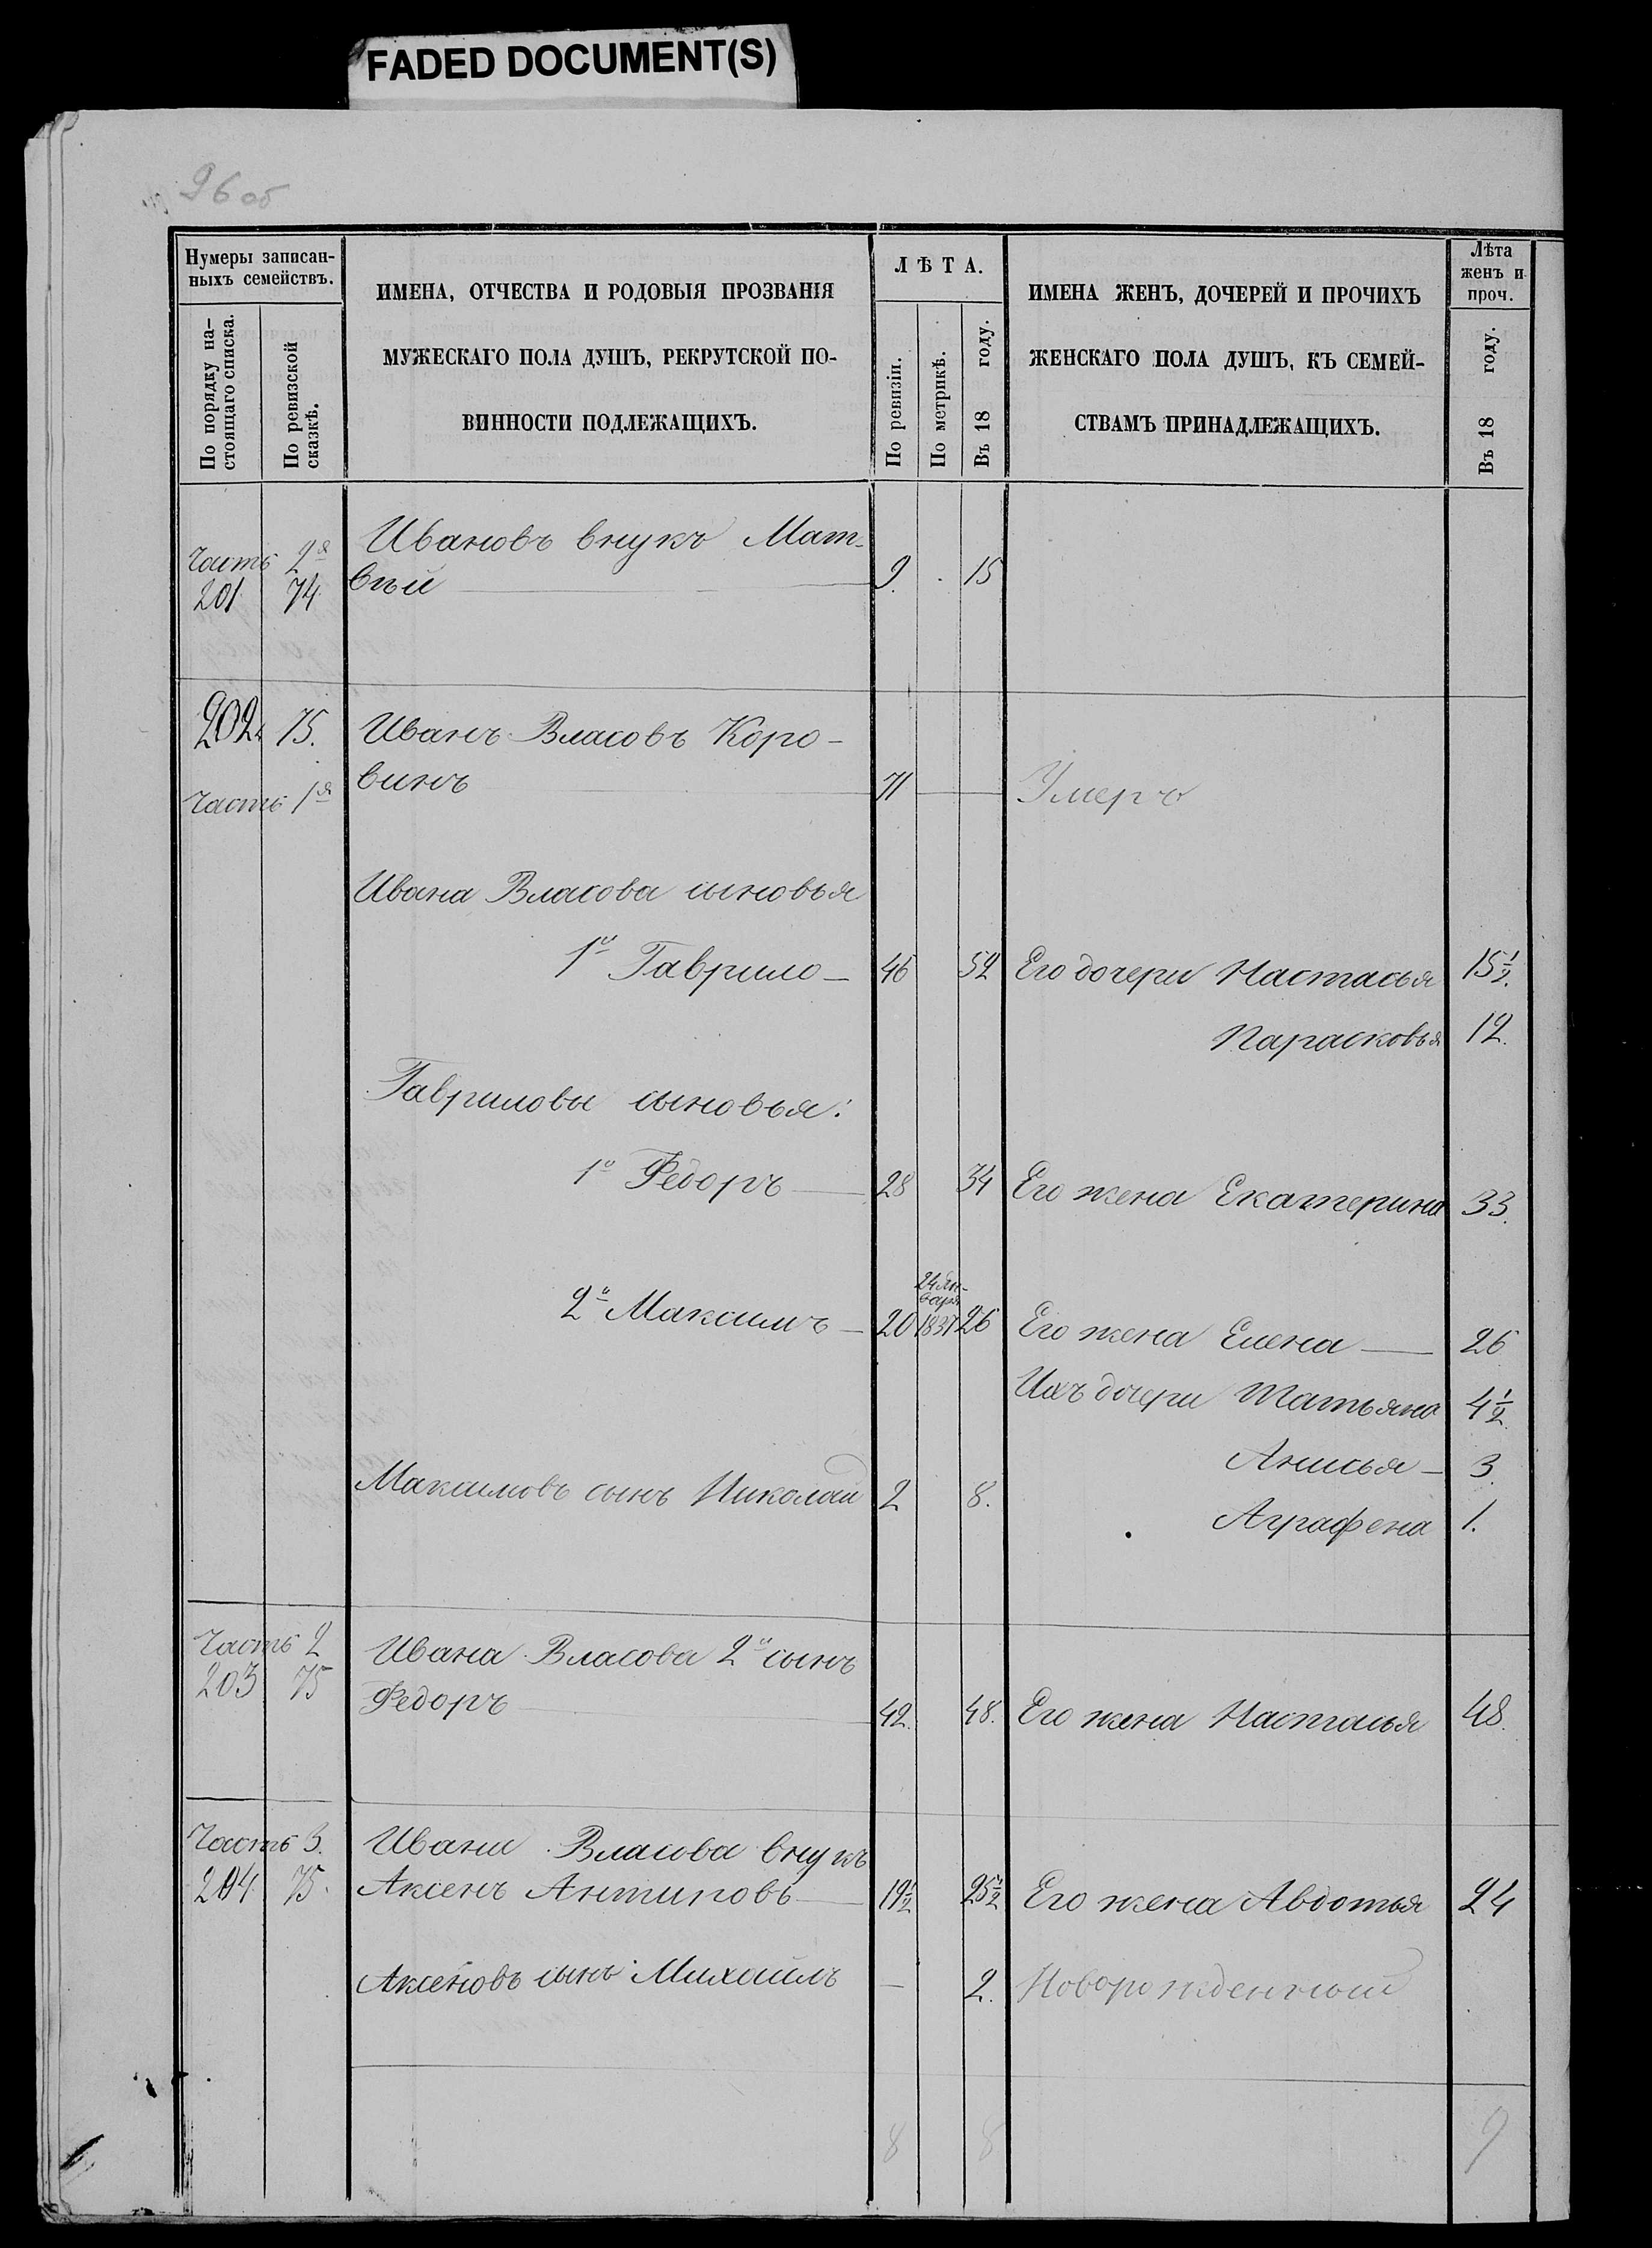 FADED DOCUMENT(S)
96 об
Нумеры записан-
ныхъ семействъ.
По порядку на-
стоящаго списка.
По ревизской
сказкѣ.
ИМЕНА, ОТЧЕСТВА И РОДОВЫЯ ПРОЗВАНІЯ
МУЖЕСКАГО ПОЛА ДУШЪ, РЕКРУТСКОЙ ПО-
ВИННОСТИ ПОДЛЕЖАЩИХЪ.
ЛѢТА.
По ревизіи.
По метрикѣ.
Въ 18 году.
ИМЕНА ЖЕНЪ, ДОЧЕРЕЙ И ПРОЧИХЪ
ЖЕНСКАГО ПОЛА ДУШЪ, КЪ СЕМЕЙ-
СТВАМЪ ПРИНАДЛЕЖАЩИХЪ.
Лѣта
женъ и
проч.
Въ 18 году.
Часть 2я Ивановъ внукъ Мат-
201 74 вѣй 9. 15
202 75. Иванъ Власовъ Коро-
Часть 1я винъ 71 Умеръ
Ивана Власова сыновья
1й Гаврило 46 52 Его дочери Настасья 15 1/2.
Парасковья 12.
Гавриловы сыновья:
1й Федоръ 28 34 Его жена Екатерина 33.
24 Ян-
варя
2й Максимъ 20 1837 26 Его жена Елена 26
Ихъ дочери Татьяна 4 1/2
Анисья 3.
Максимовъ сынъ Николай 2 8.
Аграфена 1.
Часть 2 Ивана Власова 2й сынъ
203 75 Федоръ 42. 48. Его жена Настасья 48.
Часть 3. Ивана Власова внукъ
204 75. Аксенъ Антиповъ 19 1/2 25 1/2 Его жена Авдотья 24
Аксеновъ сынъ Михаилъ — 2. Новорожденный
8 8 9